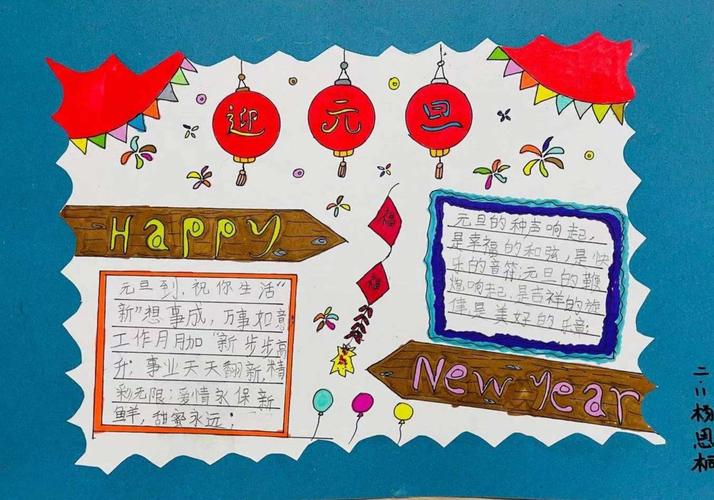 迎元旦
Happy
福
福
元旦的种声响起,
是幸福的和弦,是快
乐的音符;元旦的鞭
炮响起,是吉祥的旋
律是美好的乐章;
元旦到,祝你生活“
新”想事成,万事如意
工作月月加“新步步高
升;事业天天翻新,精
彩无限;爱情永保新
鲜,甜蜜永远;
New year
二.11杨恩桐